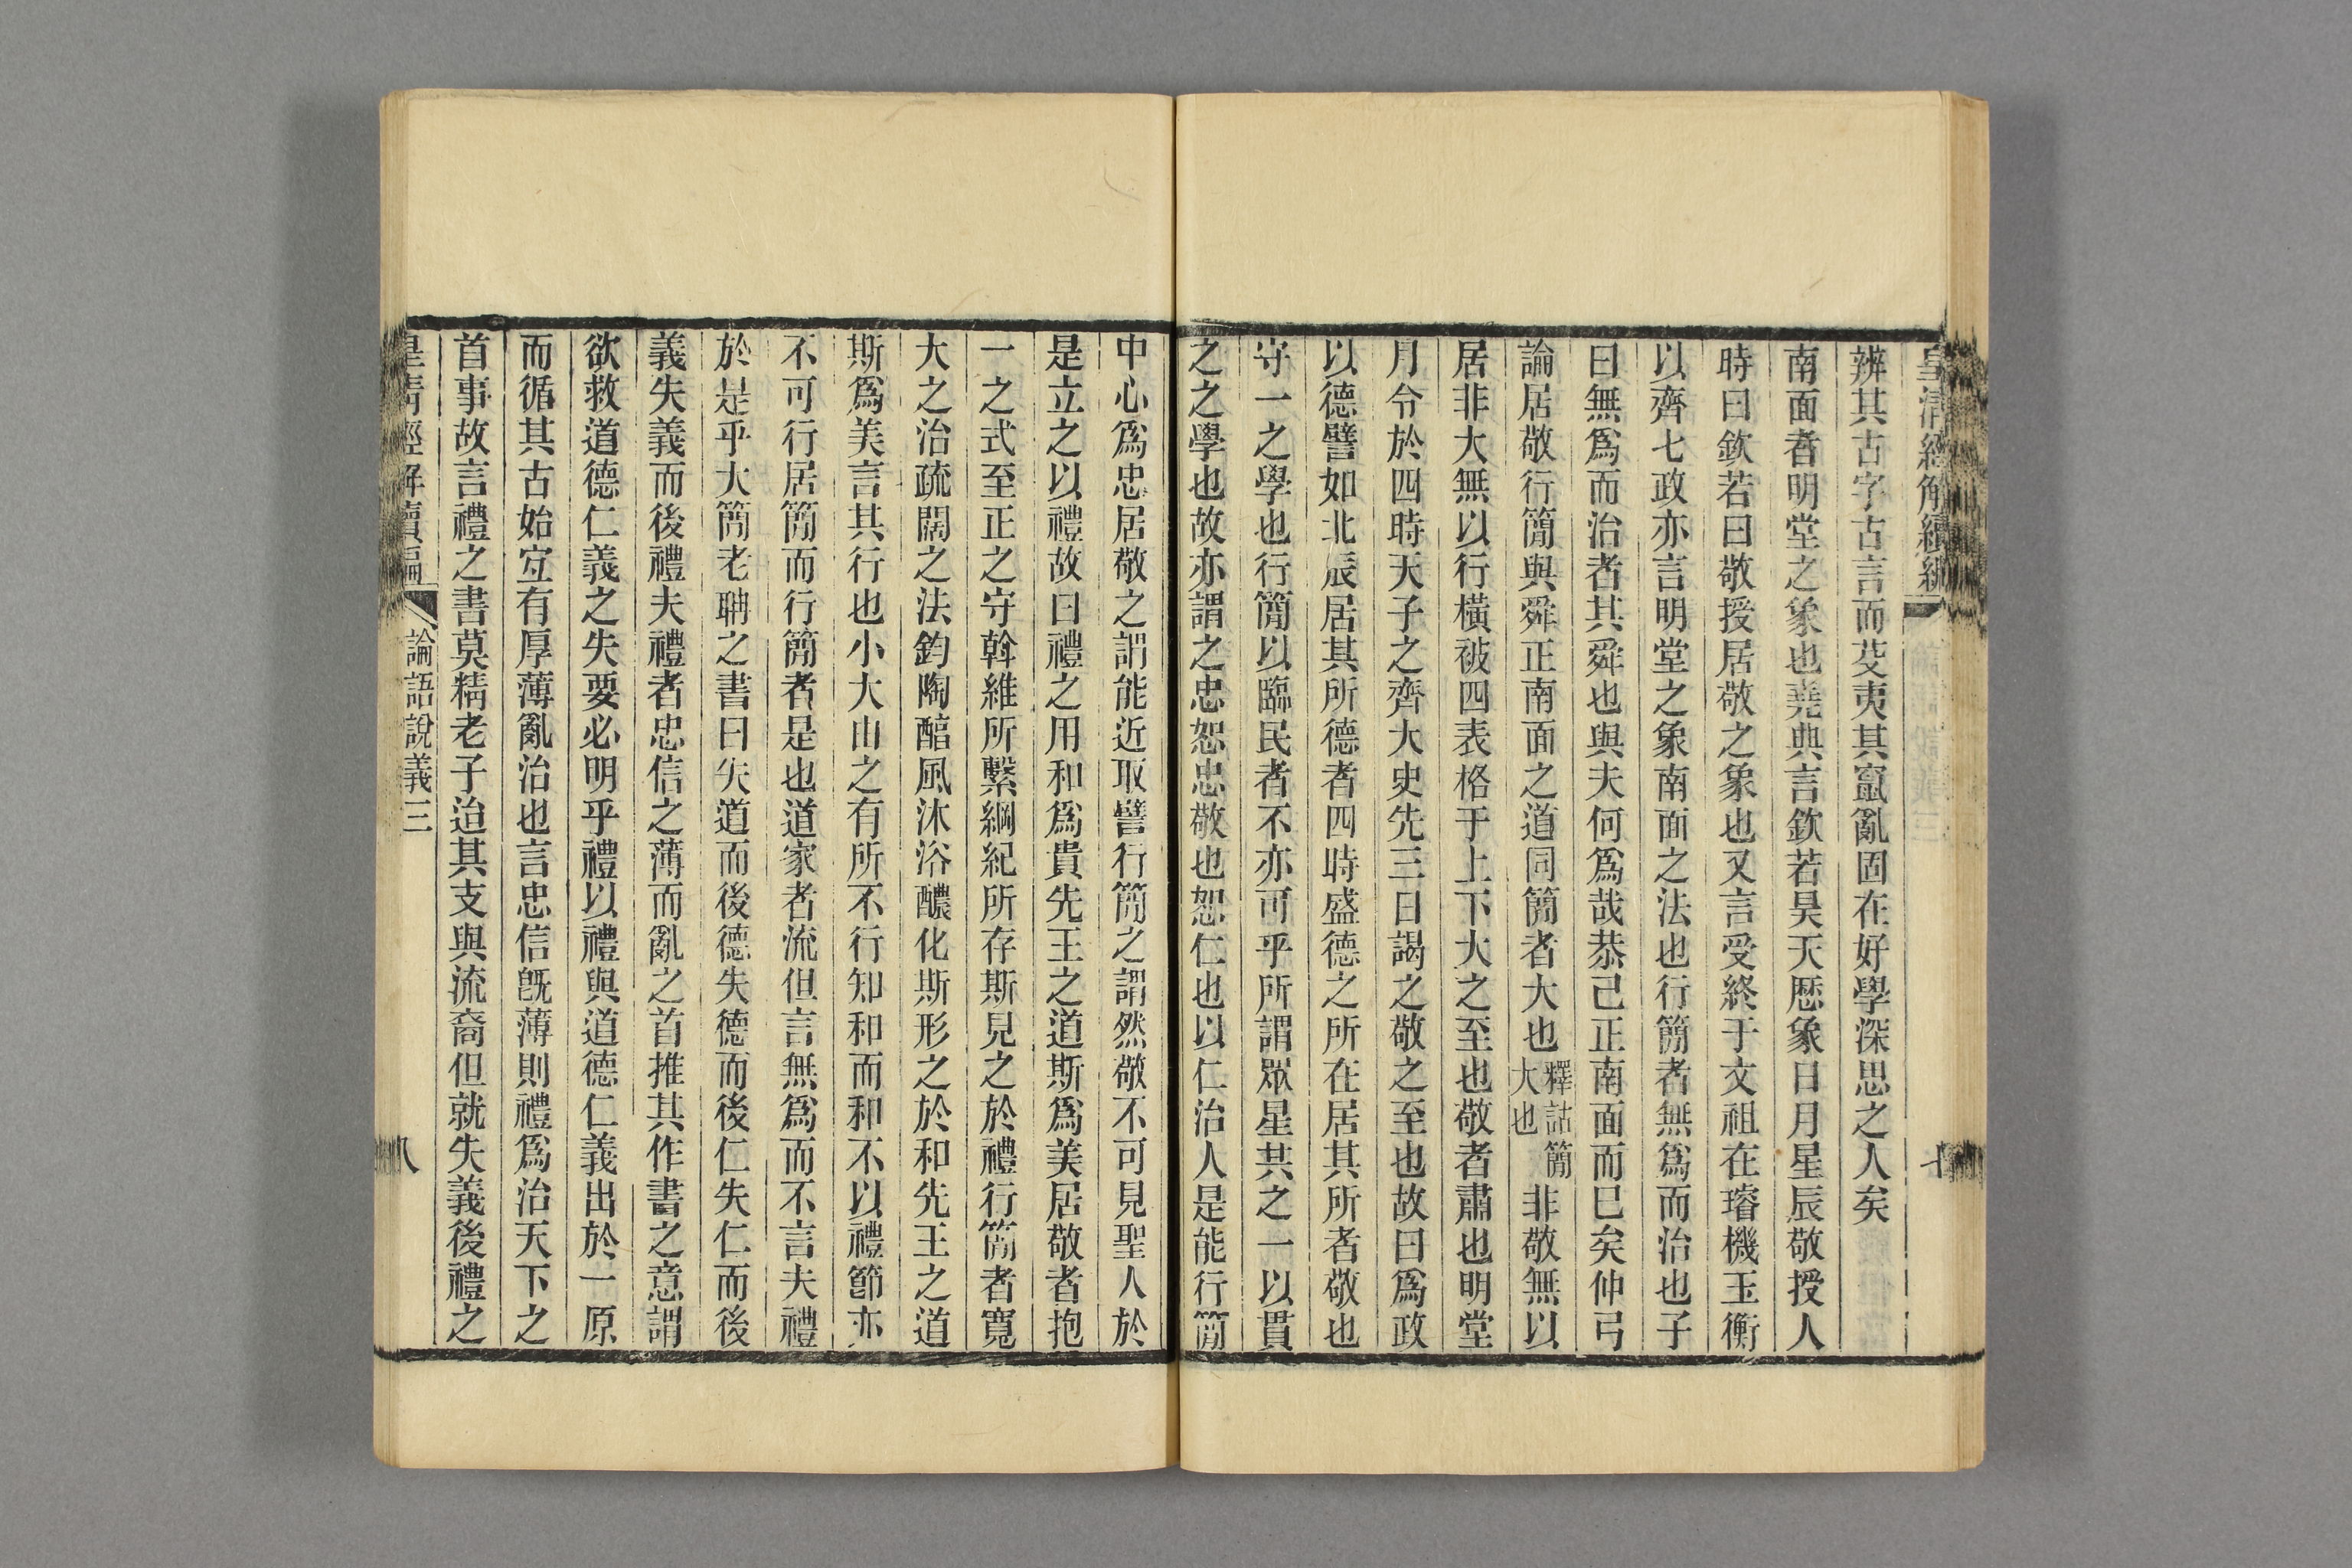 皇清經解續編
七
辨其古字古言而芟夷其竄亂固在好學深思之人矣
南面者明堂之象也堯典言欽若昊天厯象日月星辰敬授人
時曰欽若曰敬授居敬之象也又言受終于文祖在璿機玉衡
以齊七政亦言明堂之象南面之法也行簡者無爲而治也子
曰無爲而治者其舜也與夫何爲哉恭己正南面而已矣仲弓
論居敬行簡與舜正南面之道同簡者大也釋詁簡大也非敬無以
居非大無以行橫被四表格于上下大之至也敬者肅也明堂
月令於四時天子之齊大史先三日謁之敬之至也故曰爲政
以德譬如北辰居其所德者四時盛德之所在居其所者敬也
守一之學也行簡以臨民者不亦可乎所謂眾星共之一以貫
之之學也故亦謂之忠恕忠敬也恕仁也以仁治人是能行簡
中心爲忠居敬之謂能近取譬行簡之謂然敬不可見聖人於
是立之以禮故曰禮之用和爲貴先王之道斯爲美居敬者抱
一之式至正之守斡維所繫綱紀所存斯見之於禮行簡者寬
大之治疏闊之法鈞陶醕風沐浴醲化斯形之於和先王之道
斯爲美言其行也小大由之有所不行知和而和不以禮節亦
不可行居簡而行簡者是也道家者流但言無爲而不言夫禮
於是乎大簡老聃之書曰失道而後德失德而後仁失仁而後
義失義而後禮夫禮者忠信之薄而亂之首推其作書之意謂
欲救道德仁義之失要必明乎禮以禮與道德仁義出於一原
而循其古始宐有厚薄亂治也言忠信旣薄則禮爲治天下之
首事故言禮之書莫精老子迨其支與流裔但就失義後禮之
皇清經解續編
論語說義三
八